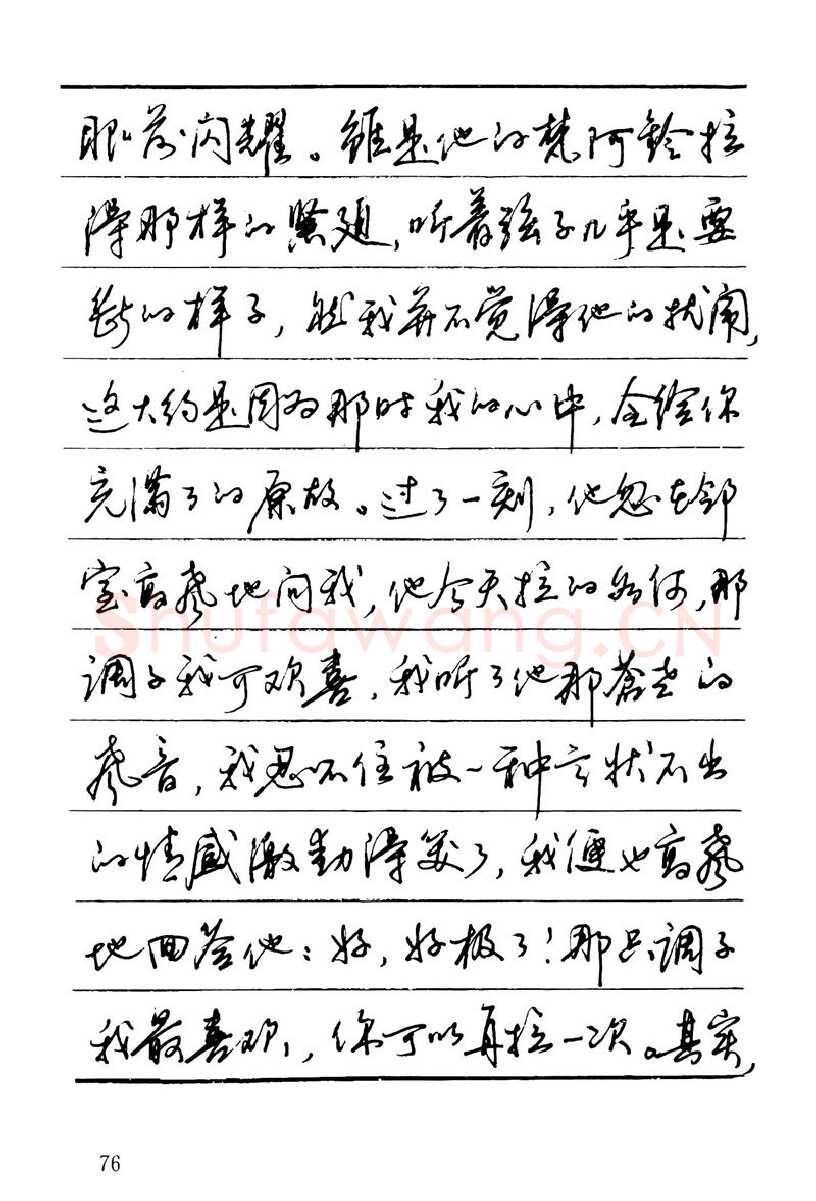 眼前闪耀。虽是他的梵阿铃拉
得那样的紧迫,听着弦子几乎是要
断的样子,然我并不觉得他的扰闹,
这大约是因为那时我的心中,全给你
充满了的原故。过了一刻,他忽在邻
室高声地问我,他今天拉的如何,那
调子我可欢喜,我听了他那苍老的
声音,我忍不住被一种言状不出
的情感激动得笑了,我便也高声
地回答他:好,好极了!那只调子
我最喜欢,你可以再拉一次。其实,
Shufawang.CN
76